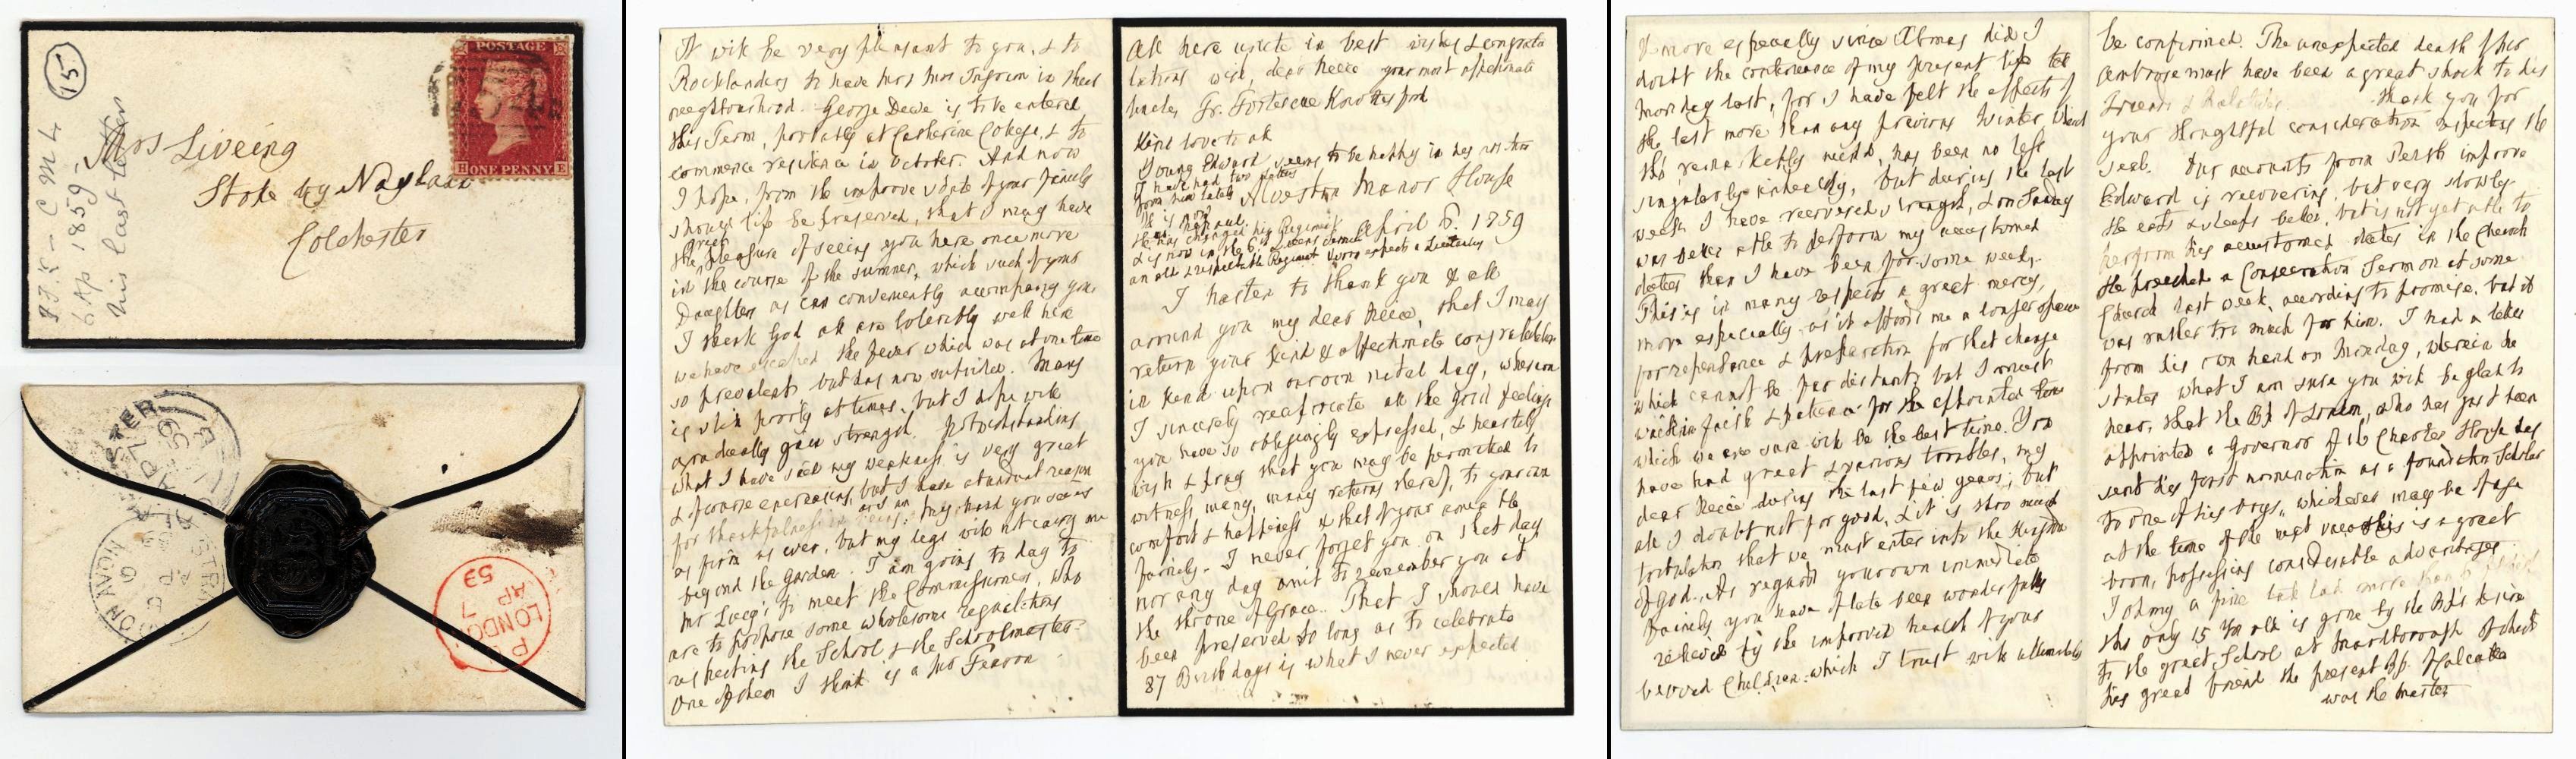 15
F.F.K - C M L
6. Ap 1859 -
his last letter
POSTAGE
ONE PENNY
Mrs Liveing
Stoke by Nayland
Colchester
LONDON
AP 7
59
It will be very pleasant to you, & to
Rocklanders to have Mrs Ingram in their
neighbourhood. George Deave is to be entered
this Term, probably at Catherine College, & to
commence residence in October. And now
I hope, from the improved state of your family
should life be preserved, that I may have
the great pleasure of seeing you here once more
in the course of the summer, which such of your
Daughters as can conveniently accompany you.
I thank God all are tolerably well here
we have escaped the fever which was at one time
so prevalent but has now subsided. Mary
is still poorly at times, but I hope will
gradually gain strength. Notwithstanding
what I have said my weakness is very great
& of course encreasing, but I have abundant reason
for thankfulness
as firm as ever, but my legs will not carry me
beyond the garden. I am going to day to
Mr Lucy's to meet the Commissioners, who
are to propose some wholesome regulations
respecting the School & the Schoolmaster.
One of them I think is a Mr Fearon
All here unite in best wishes & congratu
lations with, dear Neece your most affectionate
Uncle, Fr. Fortescue Knottesford
Kind love to all
Young Edward seems to be happy in his
I have had two letters
from him lately
He is now
He has changed his Regiment
& is now in the 6th
an old & respectable Regiment & soon expects a Lieutenancy
Alveston Manor House
April 6. 1859
I hasten to thank you & all
around you my dear Neece, that I may
return your kind & affectionate congratulations
in kind upon our own natal day, whereon
I sincerely reciprocate all the good feelings
you have so obligingly expressed, & heartily
wish & pray that you may be permitted to
witness many, many returns thereof, to your own
comfort & happiness & that of your amiable
family. I never forget you on that day
nor any day omit to remember you at
the throne of Grace. That I should have
been preserved so long as to celebrate
87 Birthdays is what I never expected
& more especially since Xtmas did I
doubt the continuance of my present life till
monday last, for I have felt the effects of
the last more than any previous Winter, which
tho' remarkably mild, has been no less
singularly unhealthy, but during the last
week I have recovered strength, & on Sunday
was better able to perform my accustomed
duties than I have been for some weeks.
This is in many respects a great mercy,
more especially as it affords me a longer space
for repentance & preparation for that change
which cannot be far distant; but I must
wait in faith & patience for the appointed time
which we are sure will be the best time. You
have had great & various troubles, my
dear Neece during the last few years; but
all I doubt not for good, & it is thro much
tribulation that we must enter into the Kingdom
of God. As regards your own immediate
Family you have of late been wonderfully
relieved by the improved health of your
beloved Children, which I trust will ultimately
be confirmed. The unexpected death of Mr
Ambrose must have been a great shock to his
Friends & Relatives. Thank you for
your thoughtful consideration respecting the
seal. Our accounts from Perth improve
Edward is recovering, but very slowly.
He eats & sleeps better, but is not yet able to
perform his accustomed duties in the Church
He preached a Consecration Sermon at some
Church last week, according to promise, but it
was rather too much for him. I had a letter
from his own hand on Monday, wherein he
states what I am sure you will be glad to
hear, that the Bp of London, who has just been
appointed a Governor of the Charter House has
sent his first nomination as a foundation Scholar
to one of his boys, whichever may be of age
at the time of the next vacancy this is a great
boon, possessing considerable advantages
a fine lad more than
tho only 15 Yrs old is gone by the Bp's desire
to the great School at Marlborough of which
his great friend the present Bp. of Calcutta
was the Master